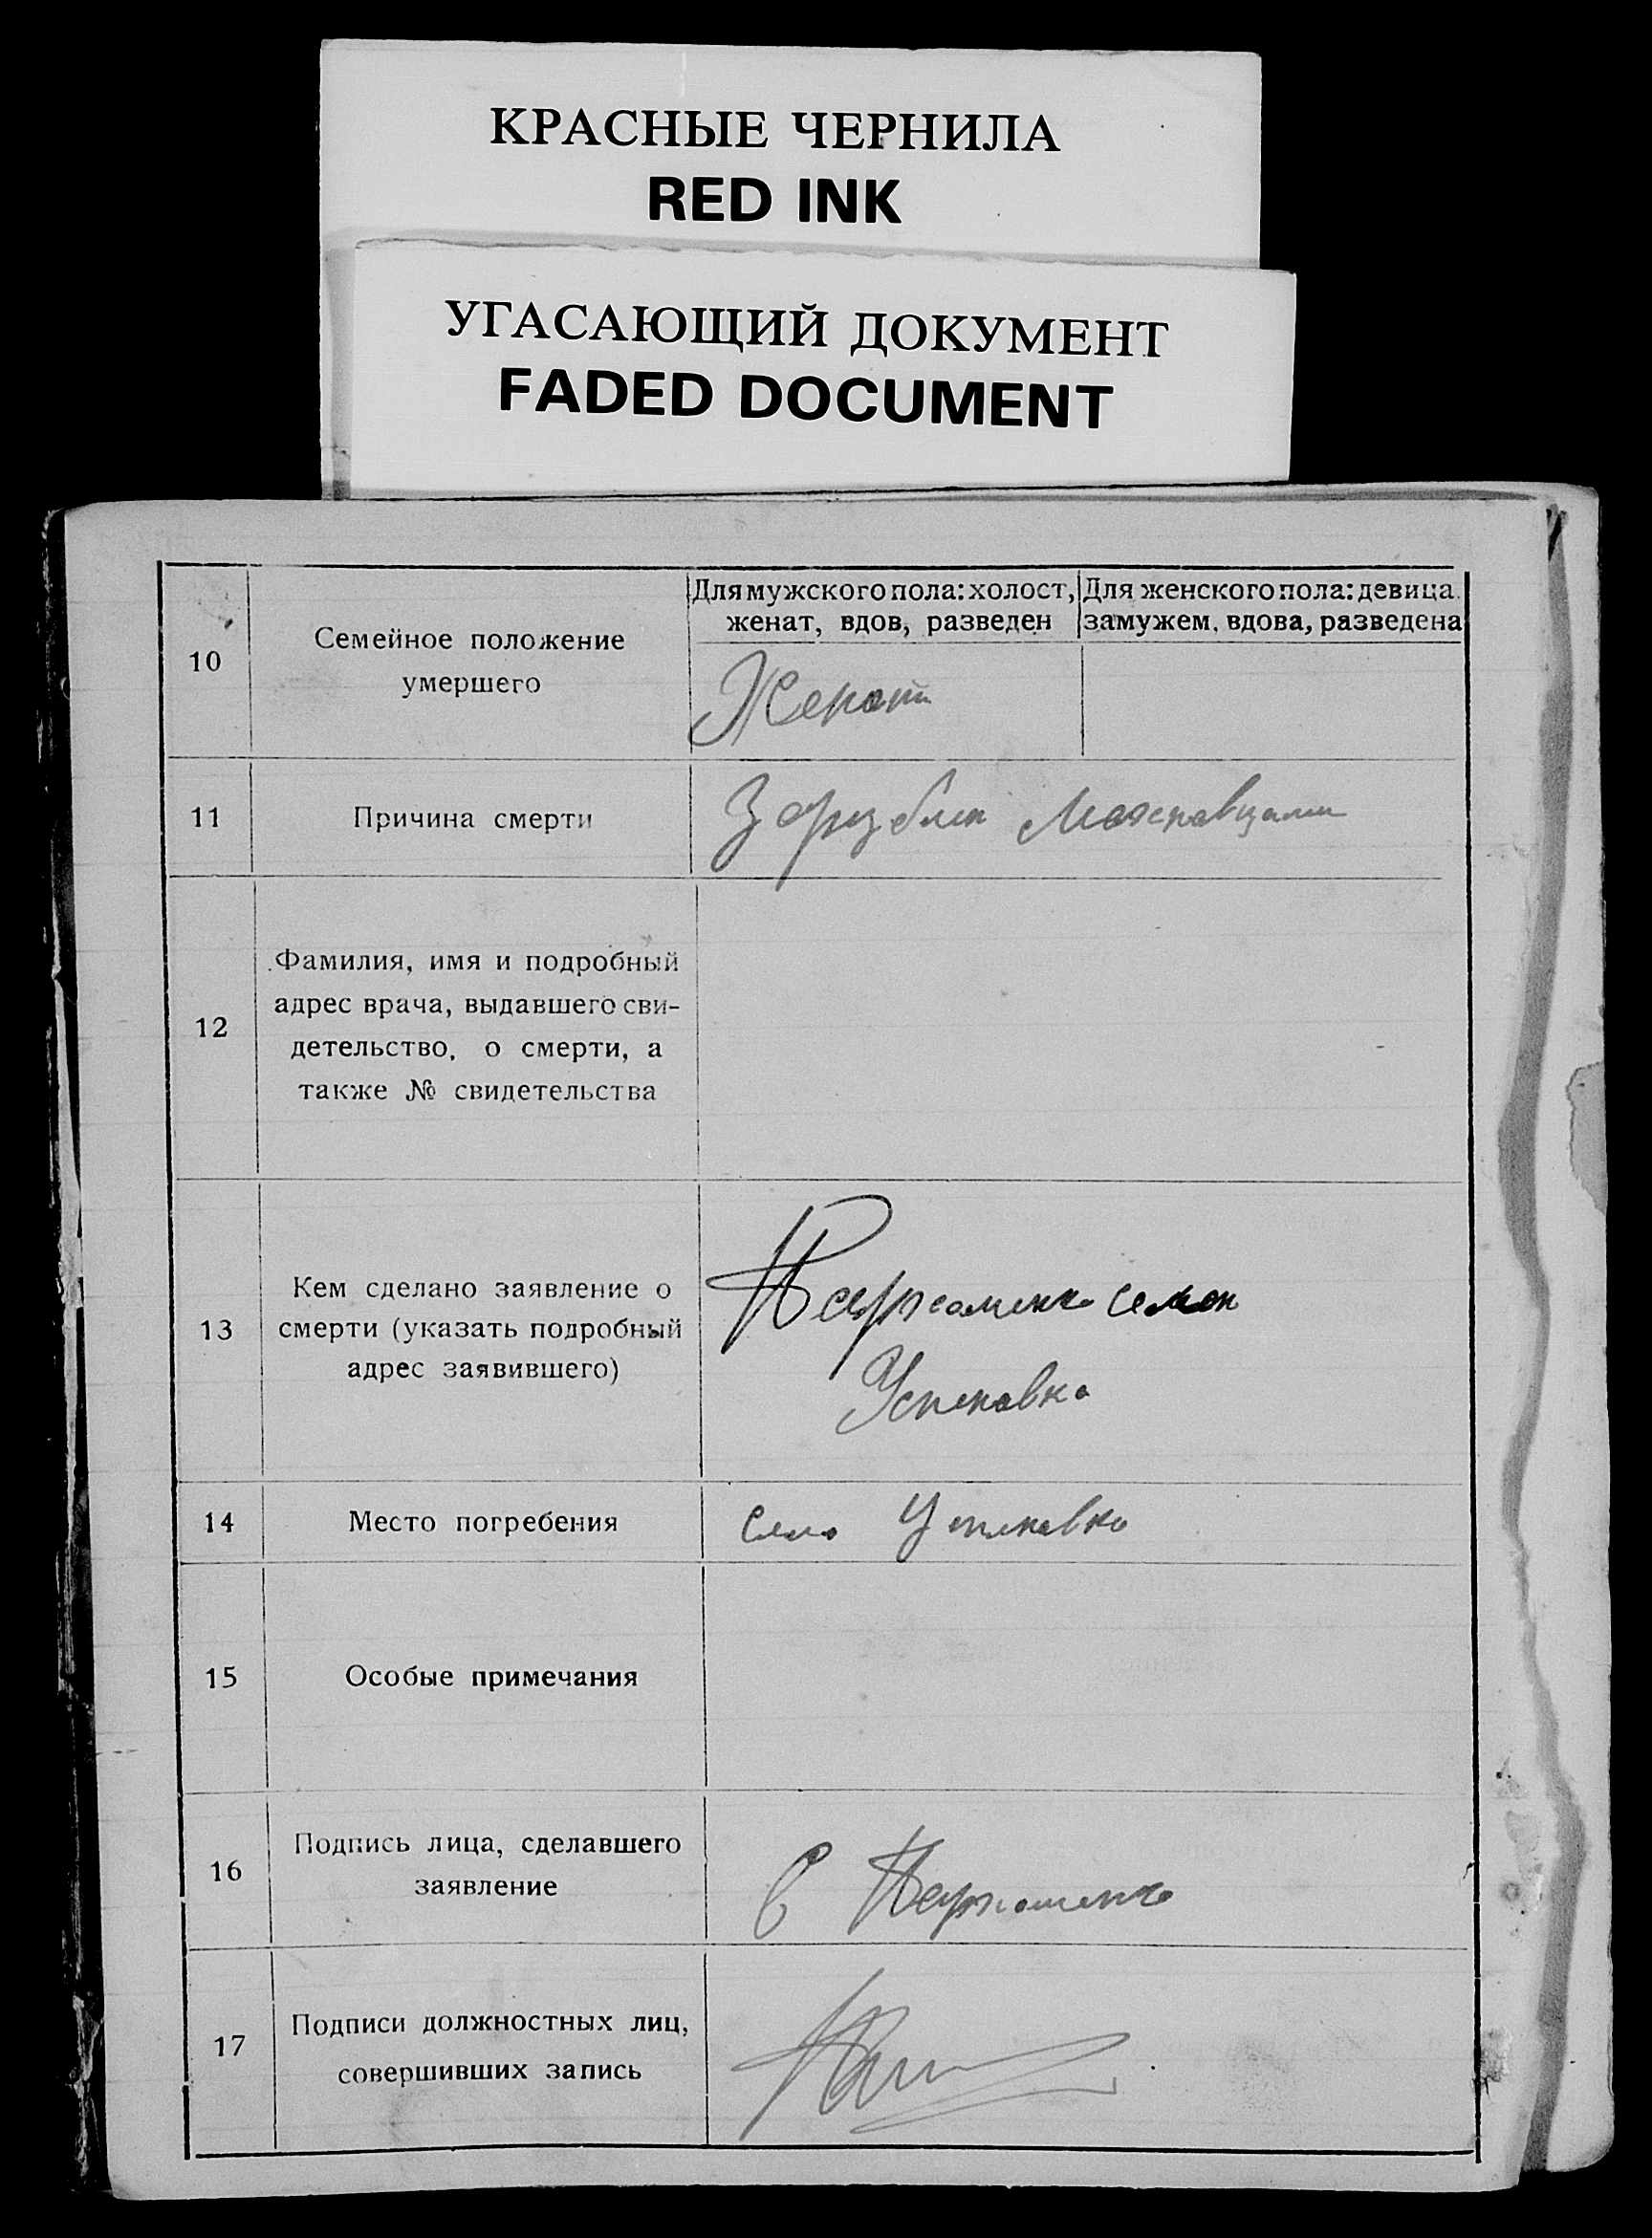 КРАСНЫЕ ЧЕРНИЛА
RED INK
УГАСАЮЩИЙ ДОКУМЕНТ
FADED DOCUMENT
10
Семейное положение
умершего
Для мужского пола: холост,
женат, вдов, разведен
Для женского пола: девица,
замужем, вдова, разведена
Женат
11
Причина смерти
Зарублен
12
Фамилия, имя и подробный
адрес врача, выдавшего сви-
детельство, о смерти, а
также № свидетельства
13
Кем сделано заявление о
смерти (указать подробный
адрес заявившего)
Семен
14
Место погребения
Село
15
Особые примечания
16
Подпись лица, сделавшего
заявление
17
Подписи должностных лиц,
совершивших запись